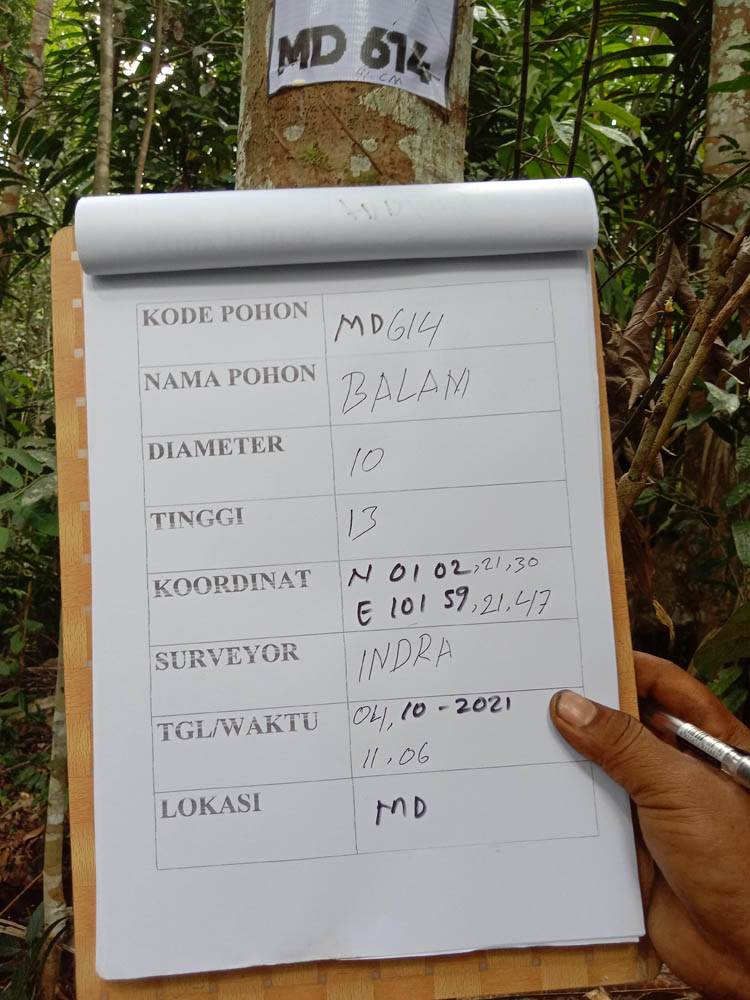 MD 614
KODE POHON MD614
NAMA POHON BALAM
DIAMETER 10
TINGGI 13
KOORDINAT N 01 02,21,30
E 101 59,21,47
SURVEYOR INDRA
TGL/WAKTU 04, 10-2021
11.06
LOKASI MD